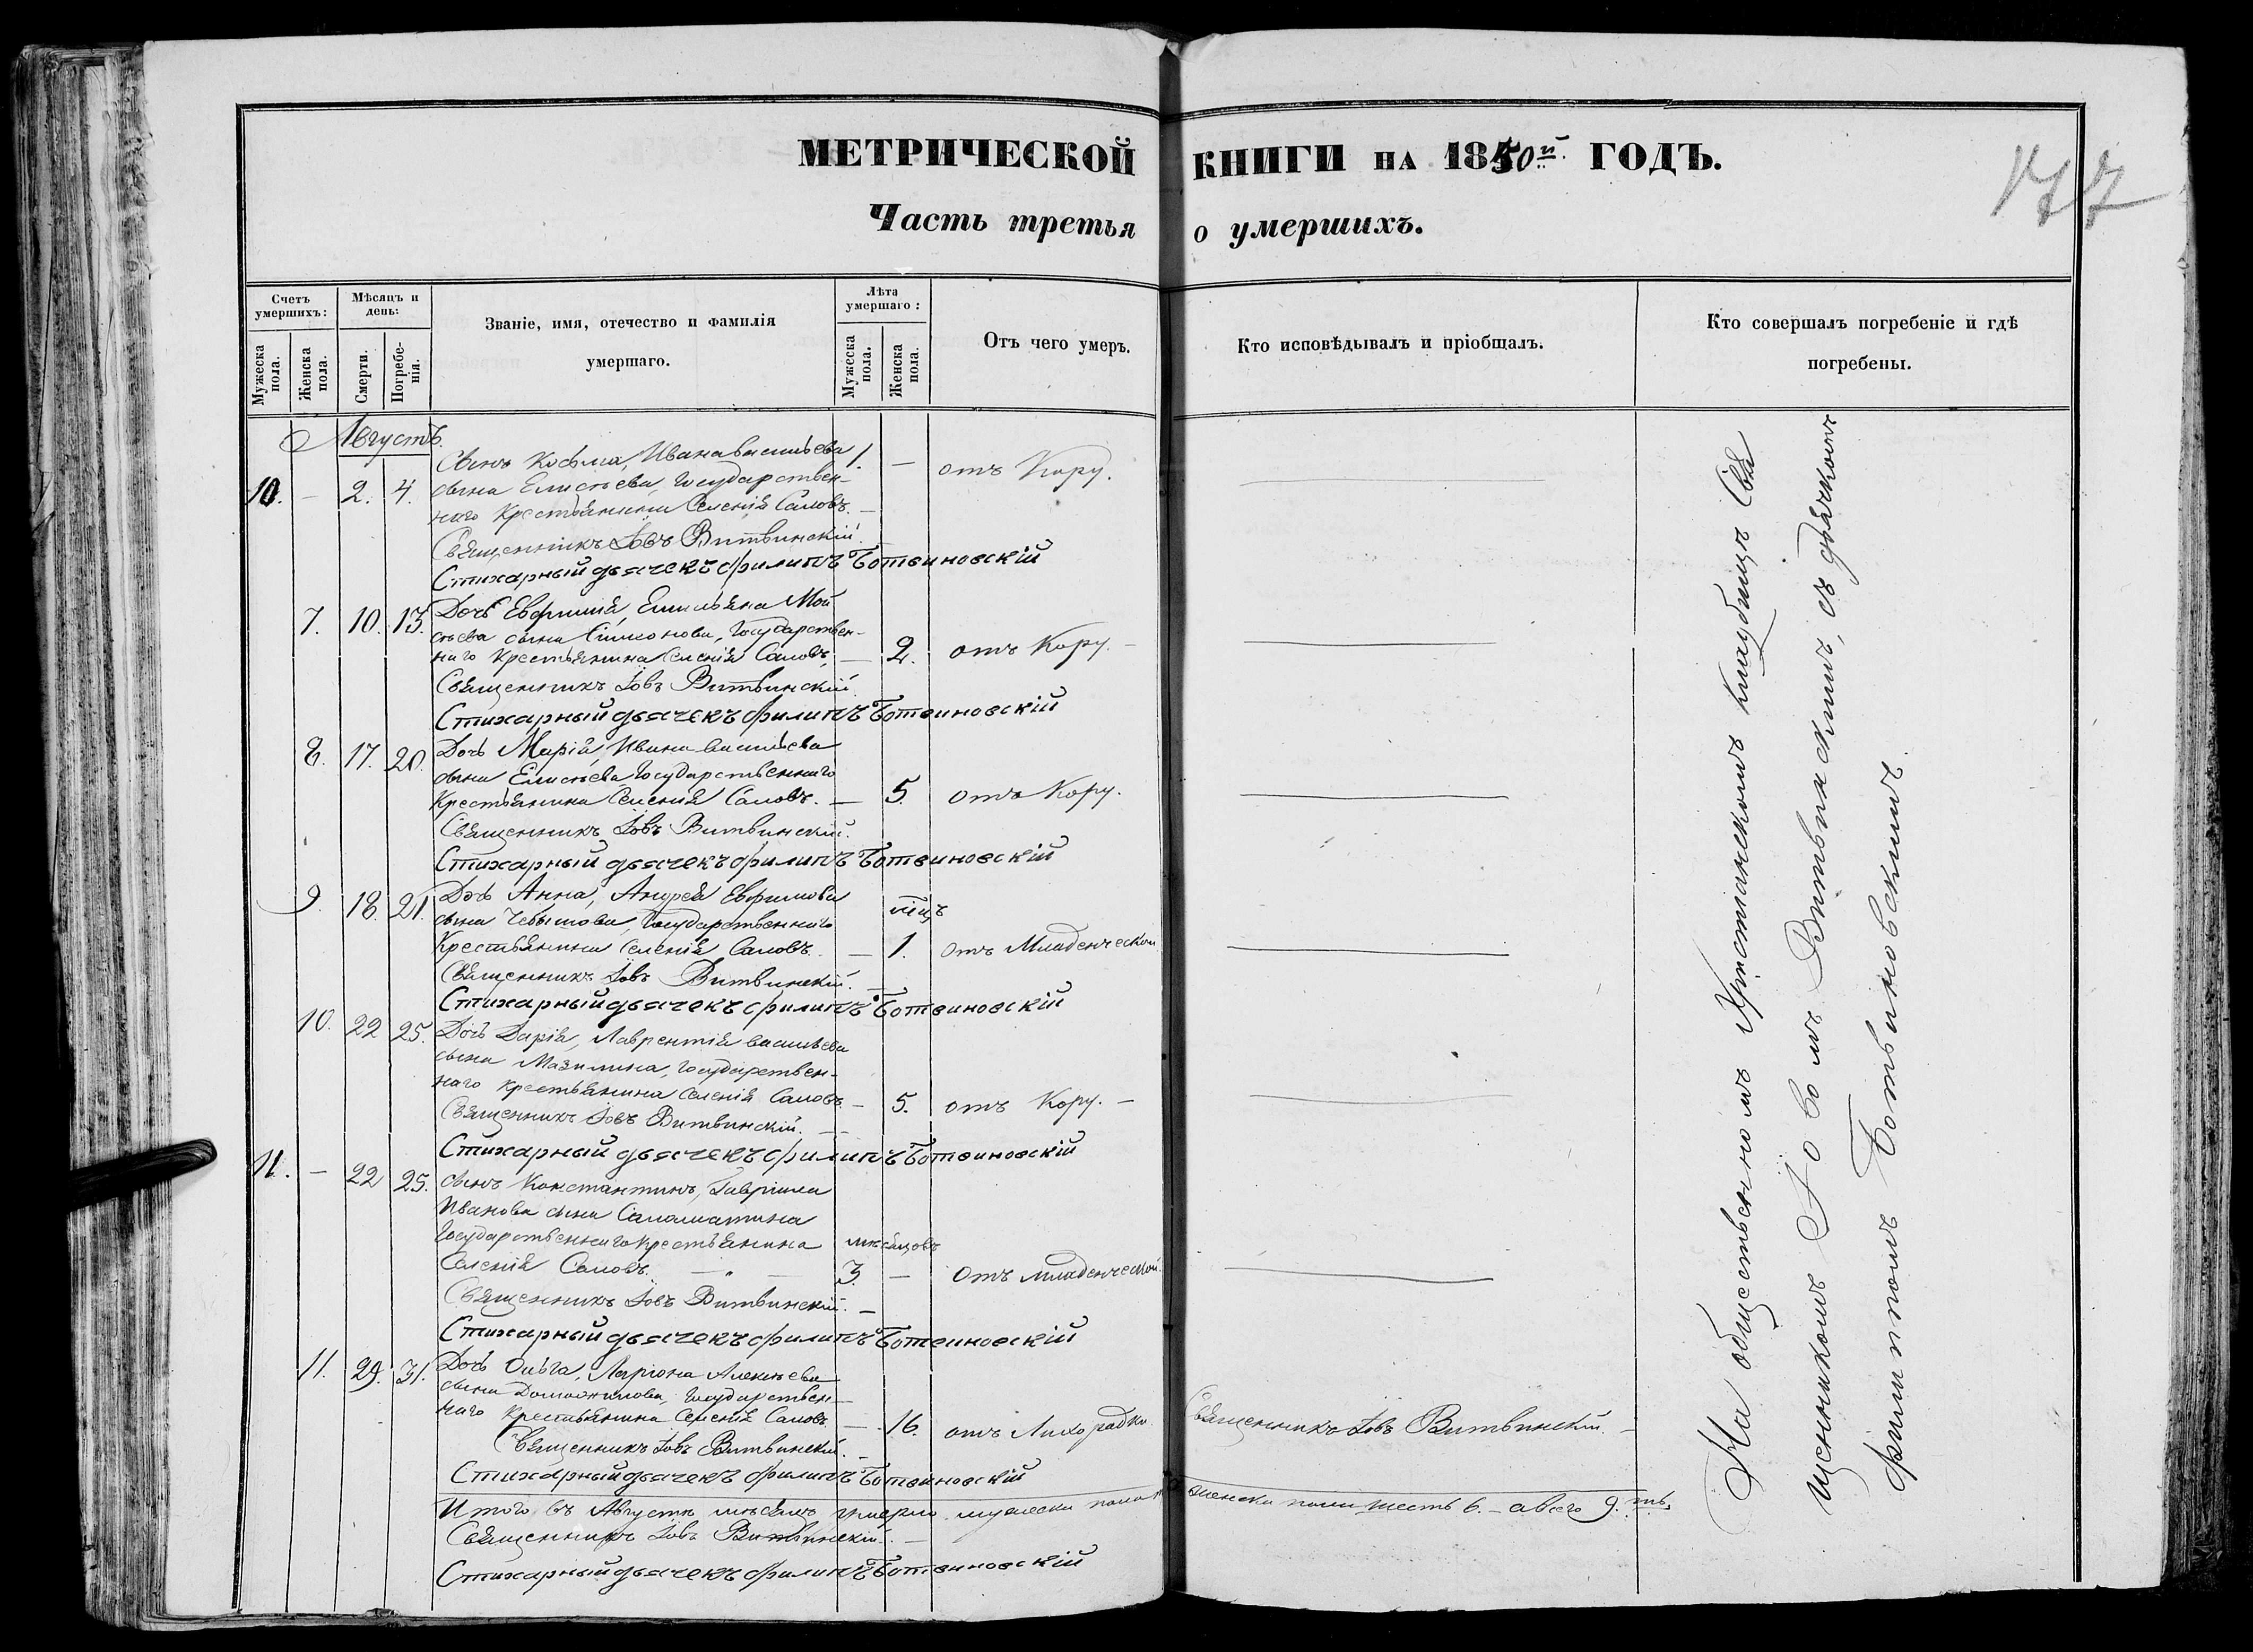 МЕТРИЧЕСКОЙ КНИГИ НА 1850й ГОДЪ.
177
Часть третья о умершихъ.
Счетъ умершихъ:
Мужеска пола.
Женска пола.
Мѣсяцъ и день:
Смерти.
Погребенія.
Званіе, имя, отечество и фамилія
умершаго.
Лѣта умершаго:
Мужеска пола.
Женска пола.
Отъ чего умеръ.
Кто исповѣдывалъ и пріобщалъ.
Кто совершалъ погребеніе и гдѣ
погребены.
Августъ.
Сынъ Косьма, Ивана васильева 1. —
10. — 2. 4. сына Елисѣева, Государствен- отъ Кору.
наго Крестьянина Селенія Саловъ. —
Священникъ Іовъ Витвинскій.
Стихарный дьячекъ филипъ Ботвиновскій
7. 10. 13. Дочь Евфимія, Емильяна Мой
сѣева сына Симонова, Государствен-
наго Крестьянина Селенія Саловъ, — 2. отъ Кору. —
Священникъ Іовъ Витвинскій.
Стихарный дьячекъ филипъ Ботвиновскій
8. 17. 20. Дочь Марія, Ивана васильева
сына Елисѣева Государственнаго
Крестьянина Селенія Саловъ. — 5. отъ Кору.
Священникъ Іовъ Витвинскій.
Стихарный дьячекъ филипъ Ботвиновскій
9. 18. 21. Дочь Анна, Андрея Евфимова
сына Чебытова, Государственнаго
Крестьянина Селенія Саловъ. — 1. отъ Младенческой
Священникъ Іовъ Витвинскій.
Стихарный дьячекъ филипъ Ботвиновскій
10. 22 25. Дочь Дарія, Лаврентія васильева
сына Мазилина, Государствен-
наго крестьянина селенія Саловъ. — 5. отъ Кору. —
Священникъ Іовъ Витвинскій. —
Стихарный дьячекъ филипъ Ботвиновскій
11. — 22 25. сынъ Константинъ, Гавріила
Иванова сына Саламатина
Государственнаго крестьянина мѣсяцовъ
Селенія Саловъ. — „ — 3. — Отъ младенческой.
Священникъ Іовъ Витвинскій. —
Стихарный дьячекъ филипъ Ботвиновскій
11. 29. 31. Дочь Ольга, Ларіона Алексѣева
сына Государствен-
наго Крестьянина Селенія Саловъ — 16. отъ Лихорадки. Священникъ Іовъ Витвинскій. —
Священникъ Іовъ Витвинскій. —
Стихарный дьячекъ филипъ Ботвиновскій
Итого въ Августѣ мѣсяцѣ умерло мужеска пола женска пола шесть 6. — а всего 9.ть.
Священникъ Іовъ Витвинскій. —
Стихарный дьячекъ филипъ Ботвиновскій
На общественномъ Христіанскомъ кладбищѣ Свя
щенникомъ Іовомъ Витвинскимъ, съ дьячкомъ
Филиппомъ Ботвиновскимъ.